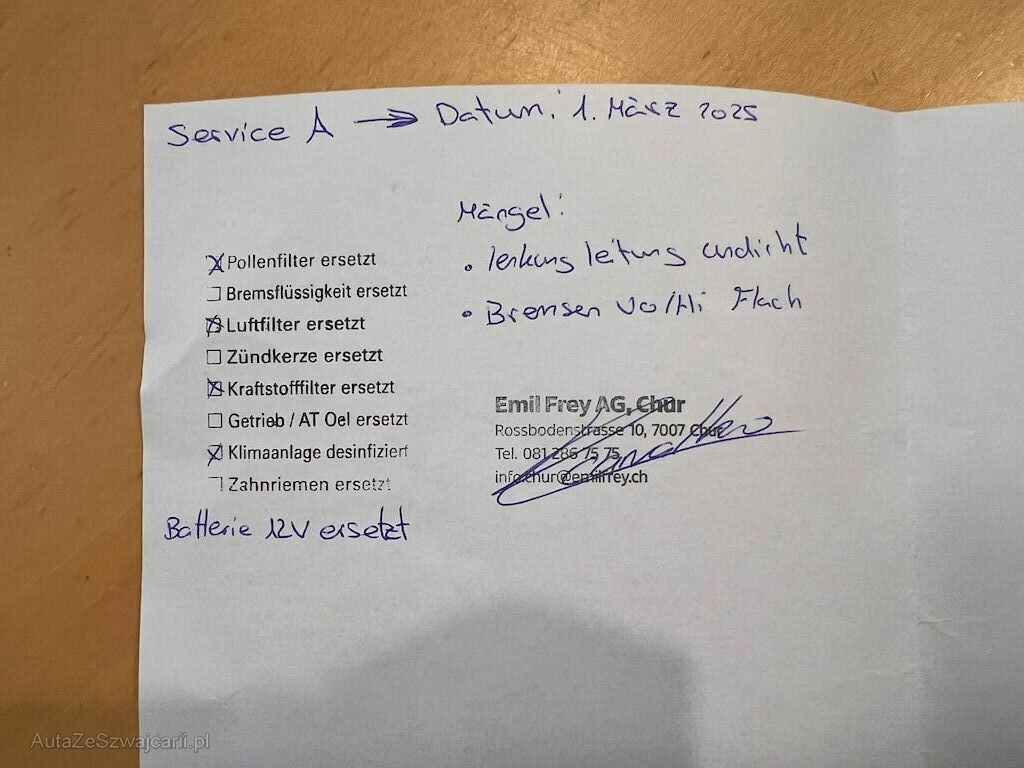 Service A → Datum: 1. März 2025
Mängel:
• lenkung leitung undicht
• Bremsen Vo/Hi Flach
☒ Pollenfilter ersetzt
☐ Bremsflüssigkeit ersetzt
☒ Luftfilter ersetzt
☐ Zündkerze ersetzt
☒ Kraftstofffilter ersetzt
☐ Getrieb / AT Oel ersetzt
☒ Klimaanlage desinfiziert
☐ Zahnriemen ersetzt
Batterie 12V ersetzt
Emil Frey AG, Chur
Rossbodenstrasse 10, 7007 Chur
Tel. 081 286 75 75
info.chur@emilfrey.ch
AutaZeSzwajcarii.pl